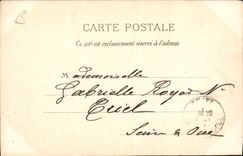 B
CARTE POSTALE
Ce côté est exclusivement réservé à l'adresse
Mademoiselle
Gabrielle Royer
Triel
Seine & Oise